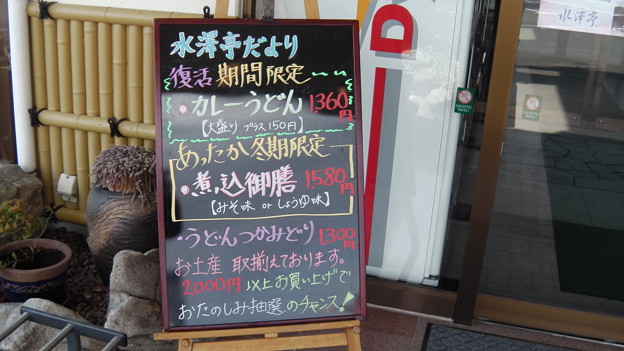 水澤亭だより
復活 期間限定
・カレーうどん 1360円
【大盛り プラス150円】
あったか冬期限定
・煮込御膳 1,580円
【みそ味 or しょうゆ味】
・うどんつかみどり 1,300円
お土産 取揃えております。
2,000円以上お買い上げで
おたのしみ抽選のチャンス!
水澤亭